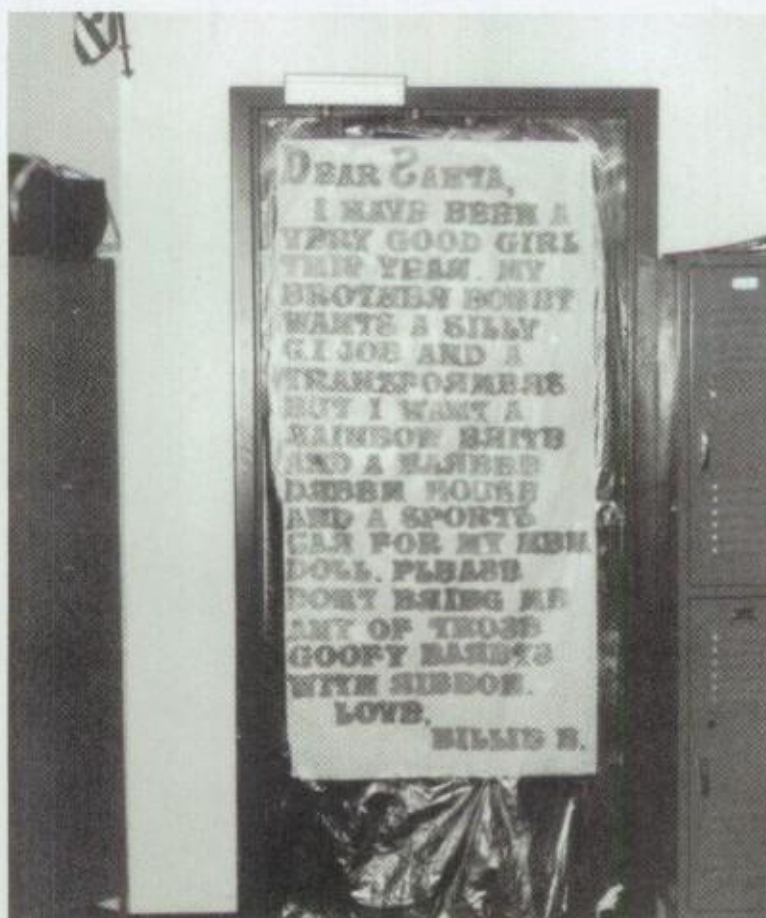 DEAR SANTA,
I HAVE BEEN A
VERY GOOD GIRL
THIS YEAR. MY
BROTHER BOBBY
WANTS A SILLY
G.I JOE AND A
TRANSFORMERS
BUT I WANT A
RAINBOW BRITE
AND A
HOUSE
AND A SPORTS
CAR FOR MY KEN
DOLL. PLEASE
DONT BRING ME
ANY OF THOSE
GOOFY
WITH RIBBON.
LOVE,
BILLIE B.